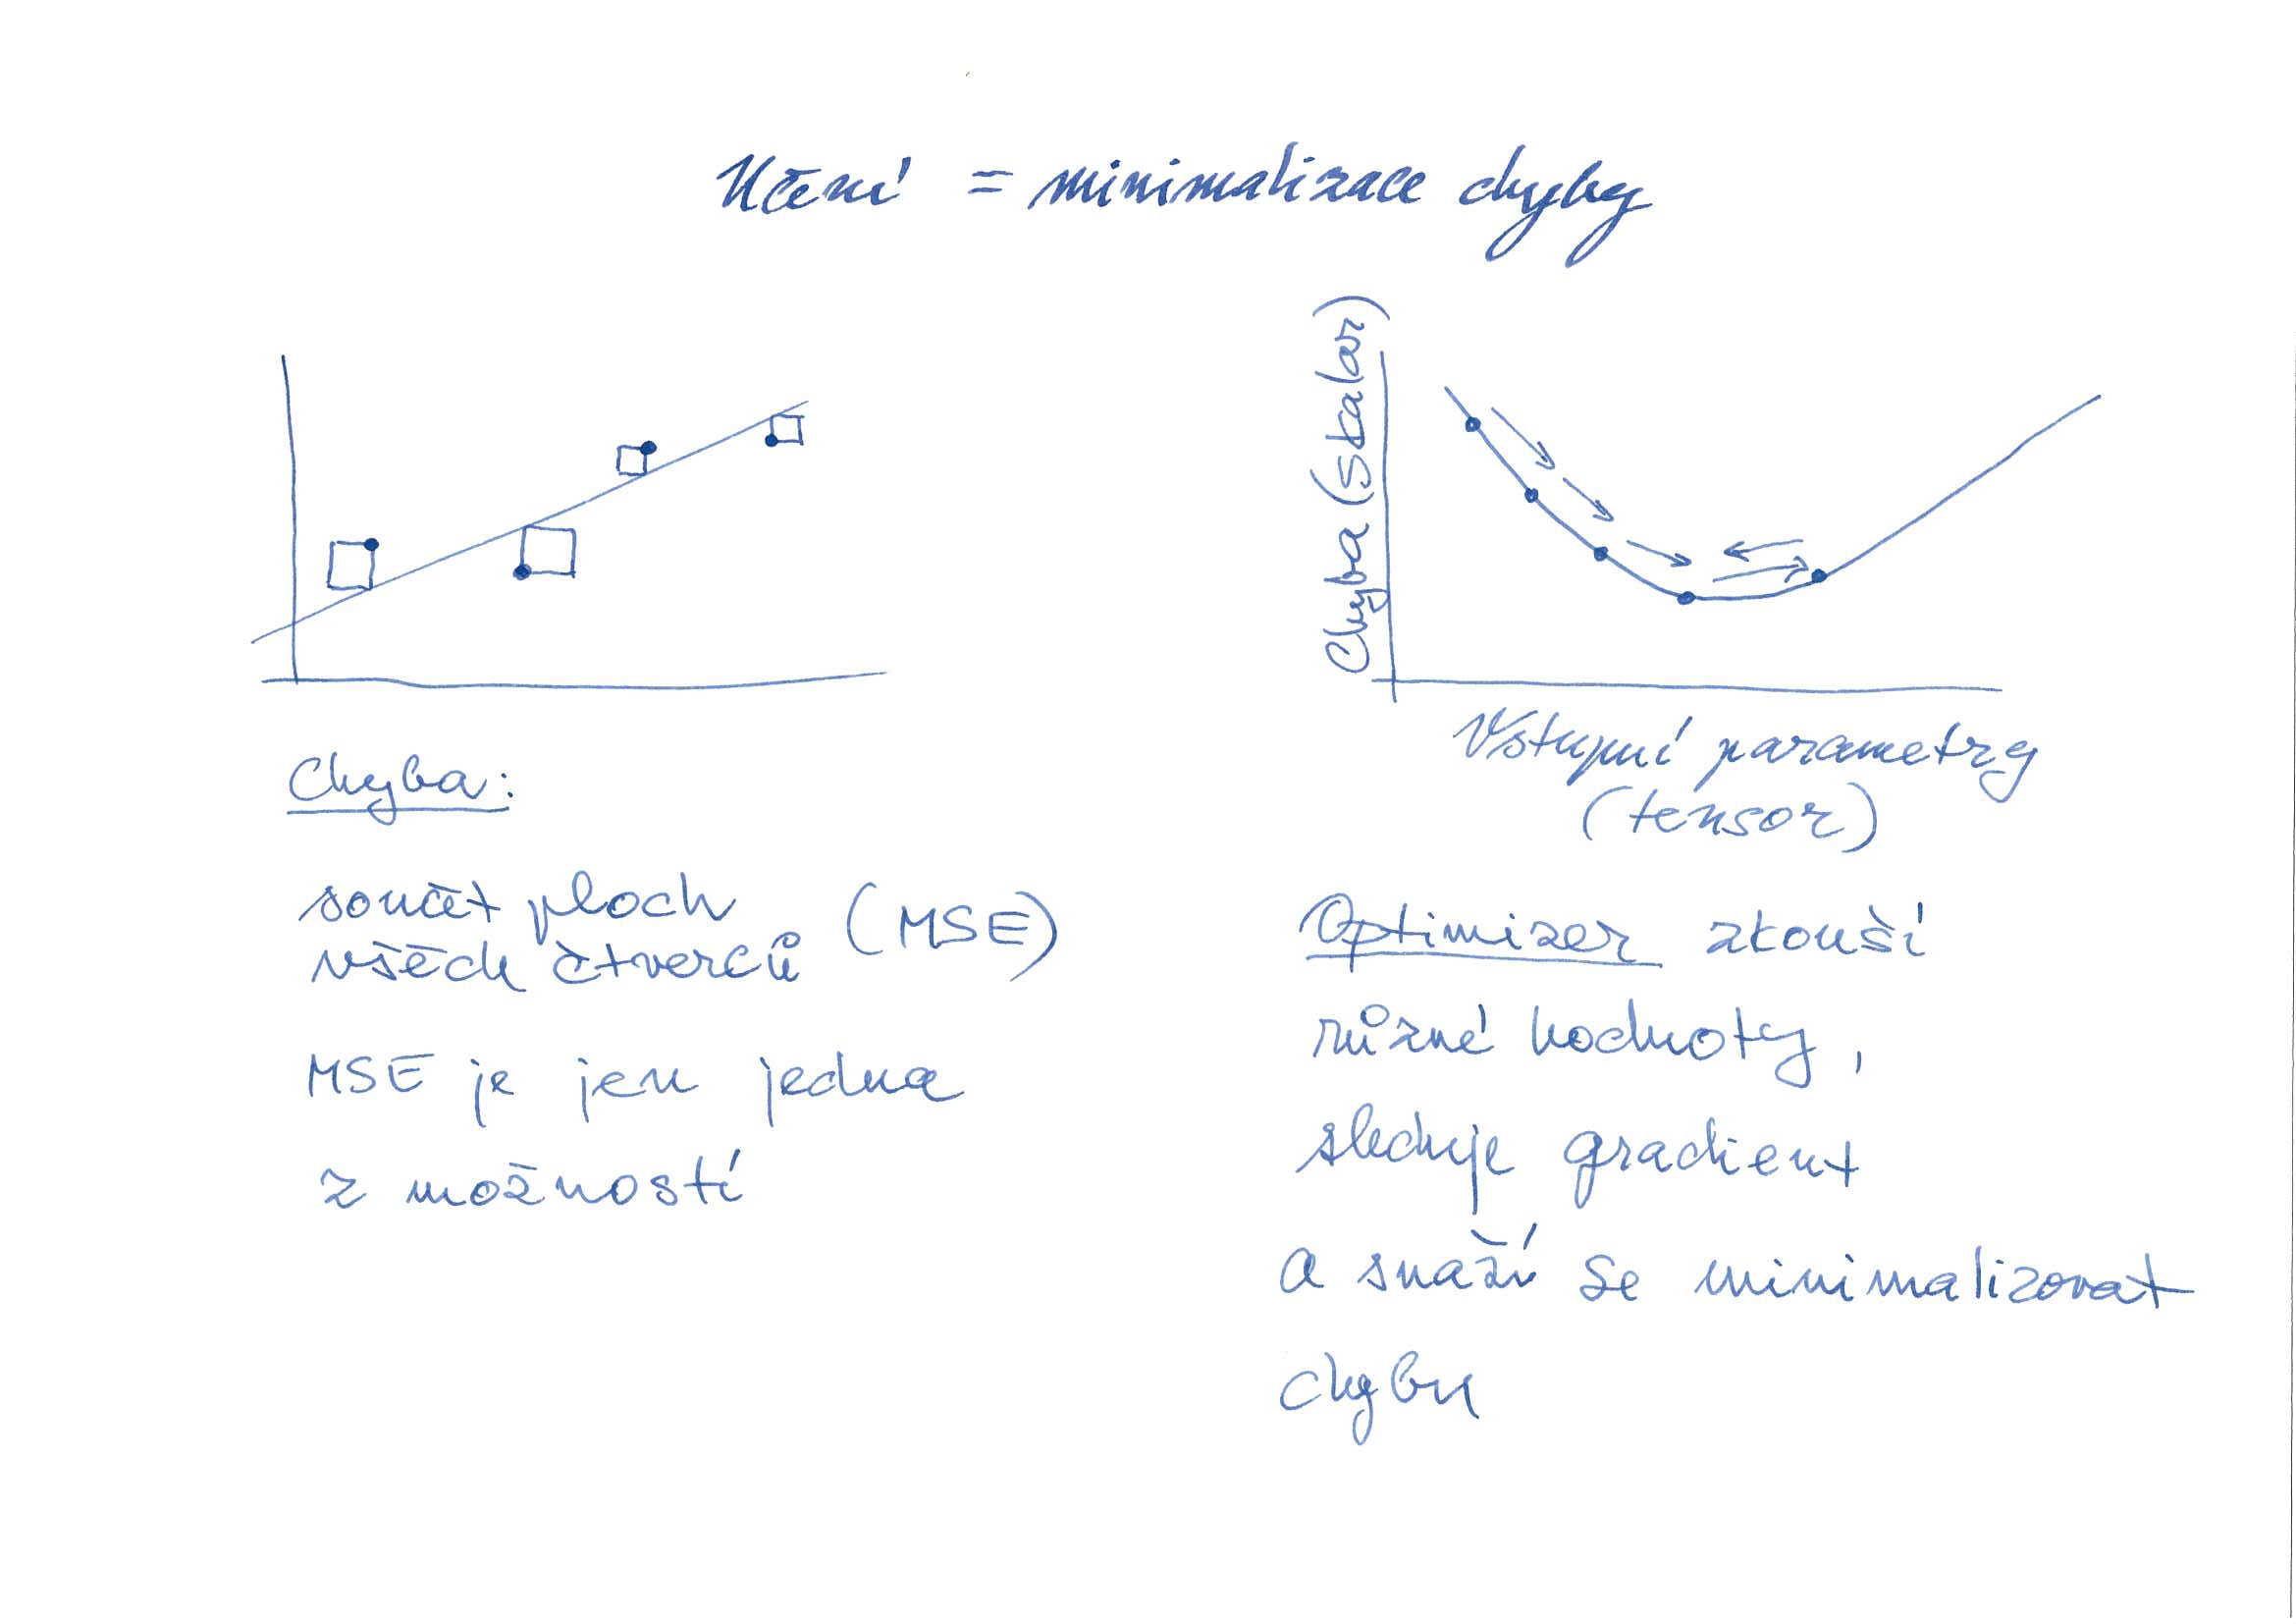 Učení = minimalizace chyby
Chyba (skalar)
Vstupní parametry
(tensor)
Chyba:
součet ploch (MSE)
všech čtverců
MSE je jen jedna
z možností
Optimizer zkouší
různé hodnoty,
sleduje gradient
a snaží se minimalizovat
chybu